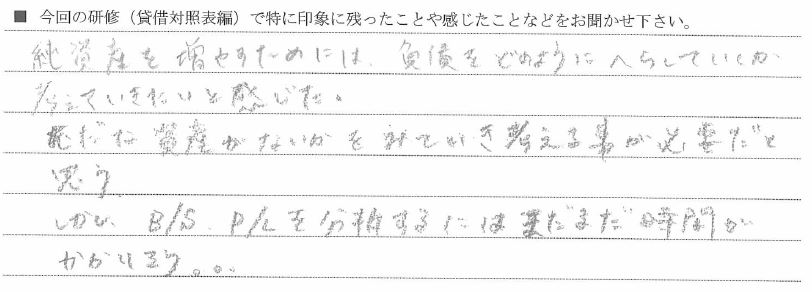 ■ 今回の研修（貸借対照表編）で特に印象に残ったことや感じたことなどをお聞かせ下さい。
純資産を増やすためには、負債をどのようにへらしていくか
考えていきたいと感じた。
むだな資産がないかをみていき考える事が必要だと
思う
しかし、B/S、P/Lを分析するにはまだまだ時間が
かかりそう。。。